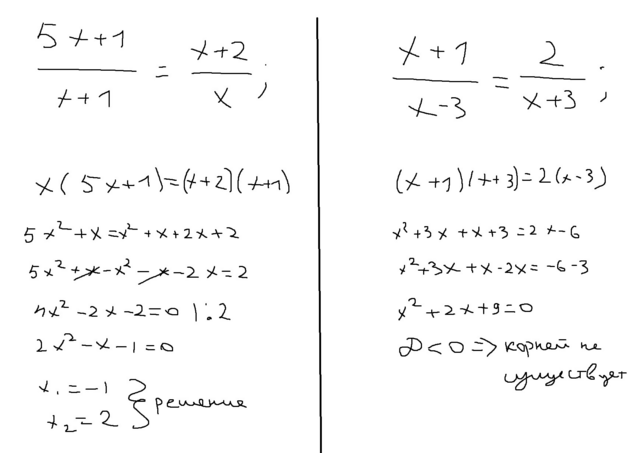 (5x+1)/(x+1) = (x+2)/x ;
x(5x+1)=(x+2)(x+1)
5x²+x=x²+x+2x+2
5x²+x-x²-x-2x=2
4x²-2x-2=0 |:2
2x²-x-1=0
x₁=-1
x₂=2 } решение
(x+1)/(x-3) = 2/(x+3) ;
(x+1)(x+3)=2(x-3)
x²+3x+x+3=2x-6
x²+3x+x-2x=-6-3
x²+2x+9=0
D<0 => корней не
существует